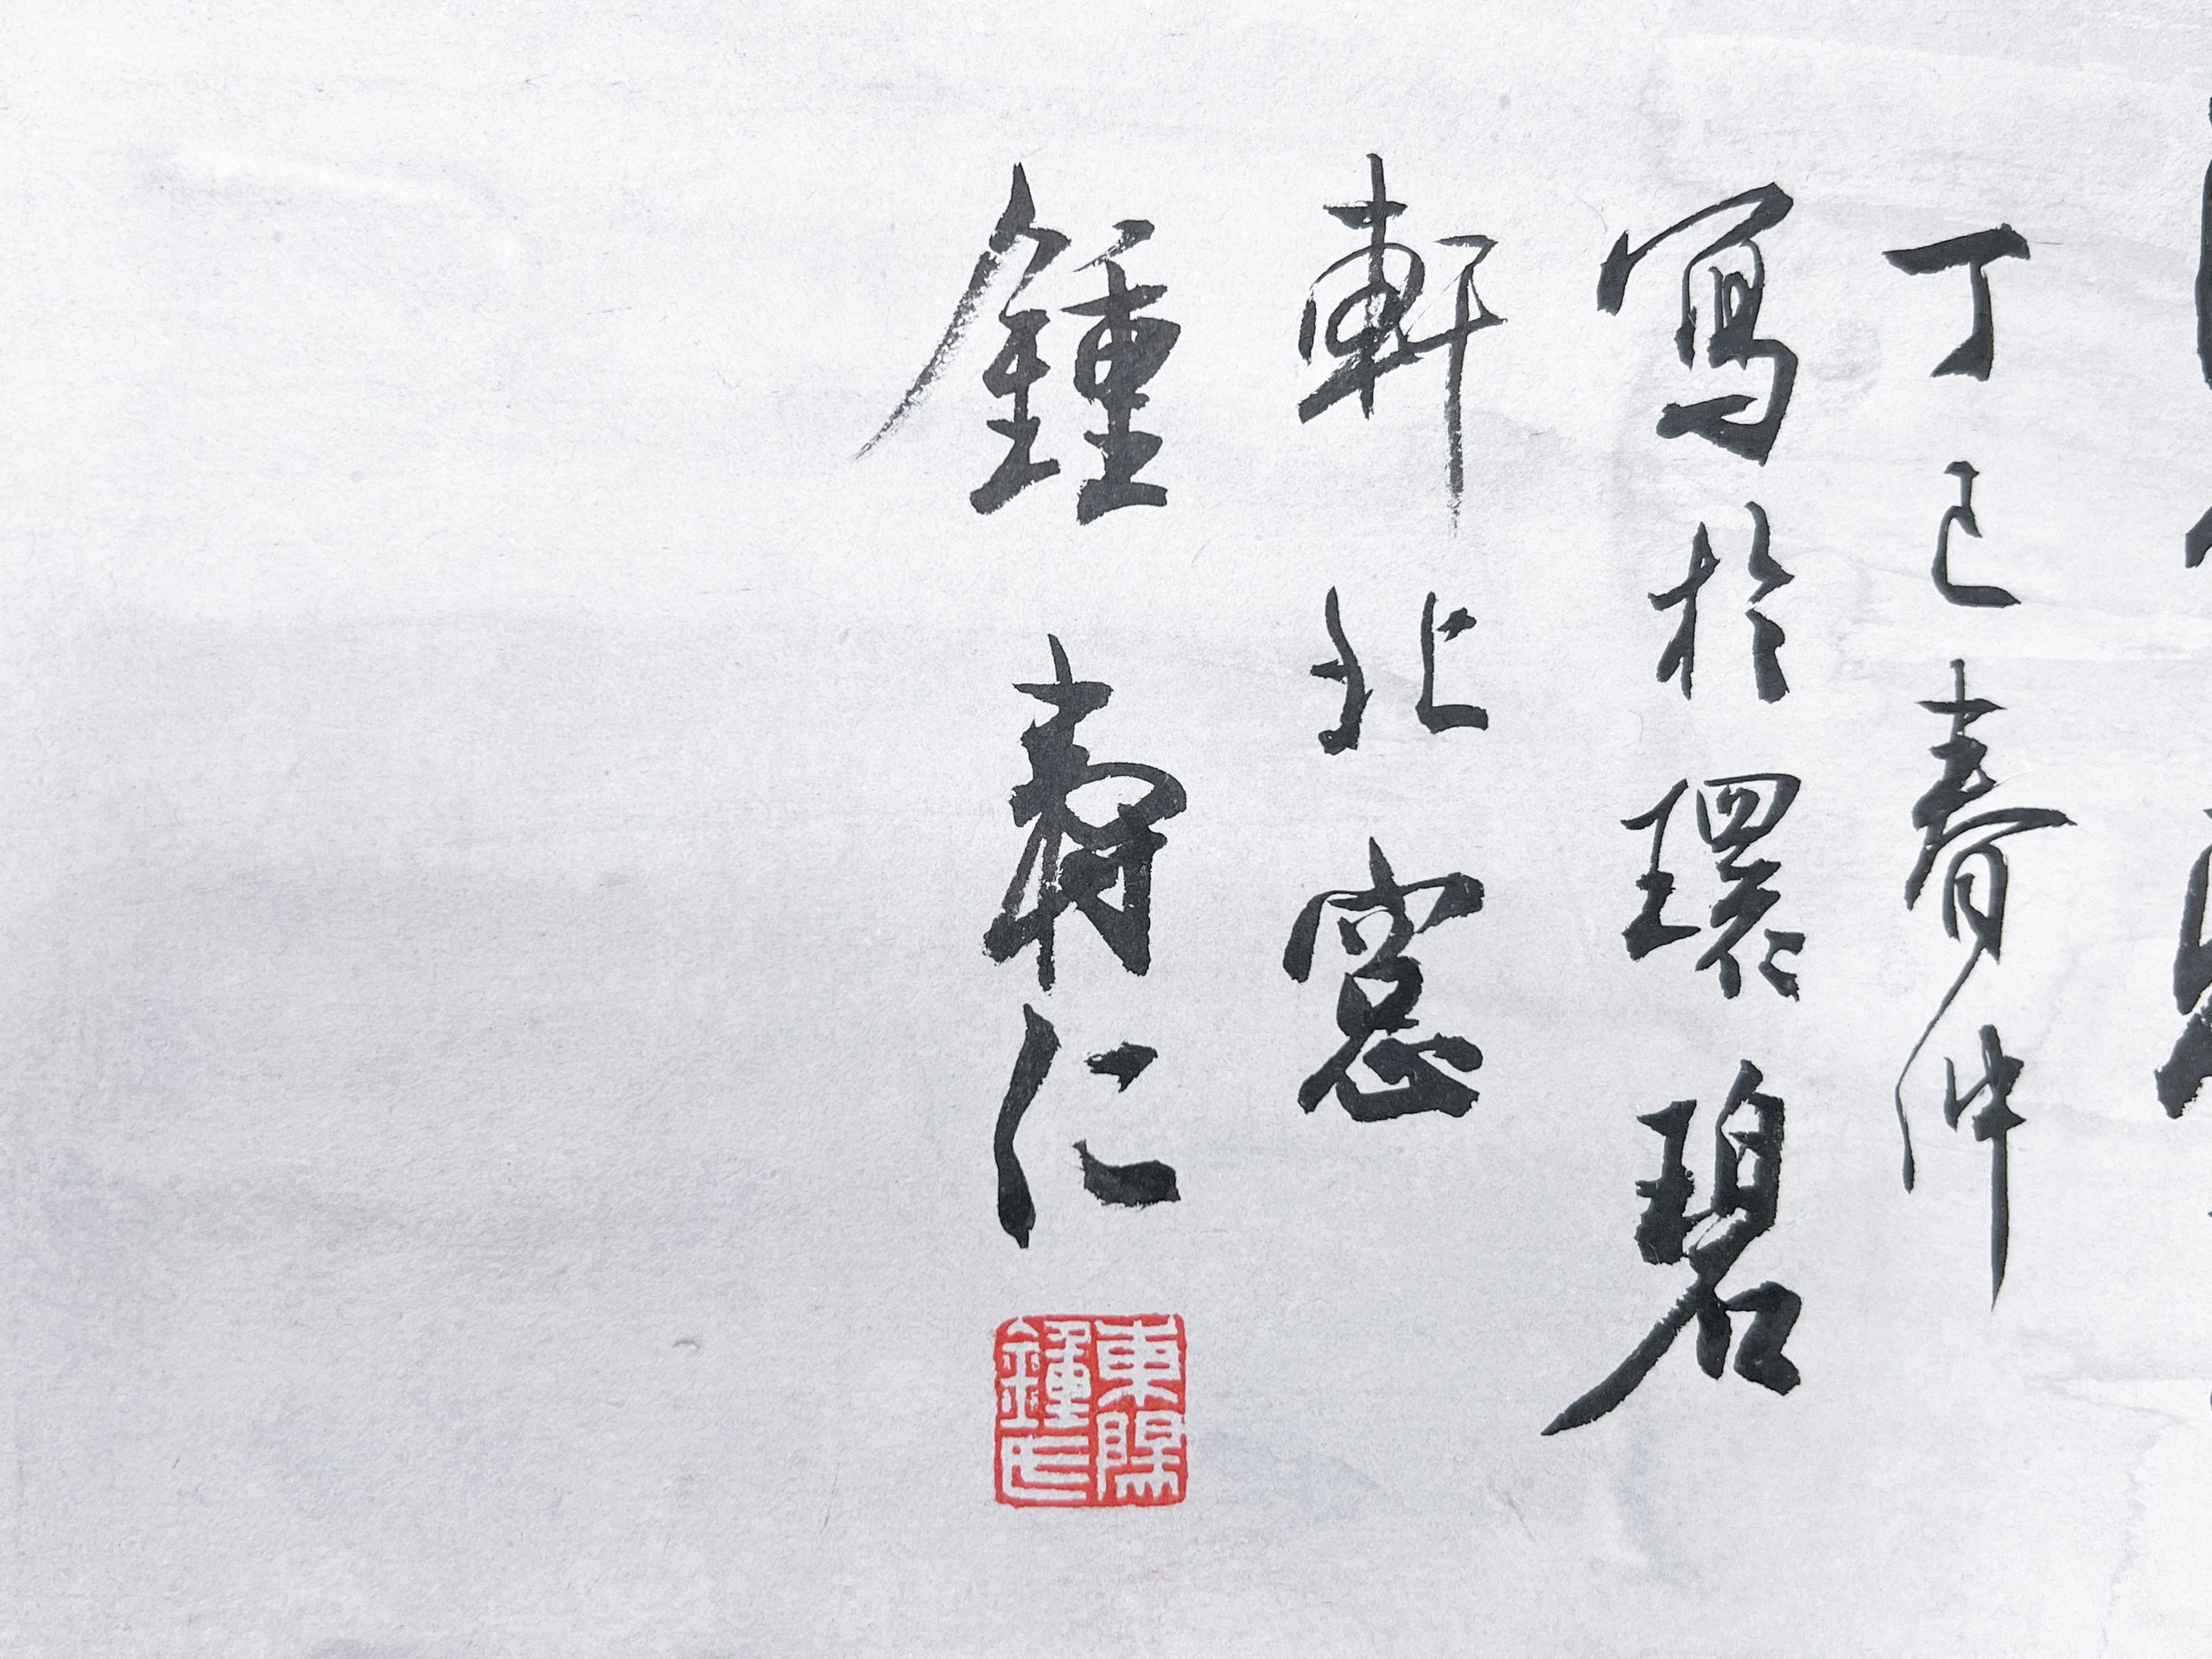 丁巳春仲
寫於環碧
軒北窓
鍾壽仁
東陽
鍾氏